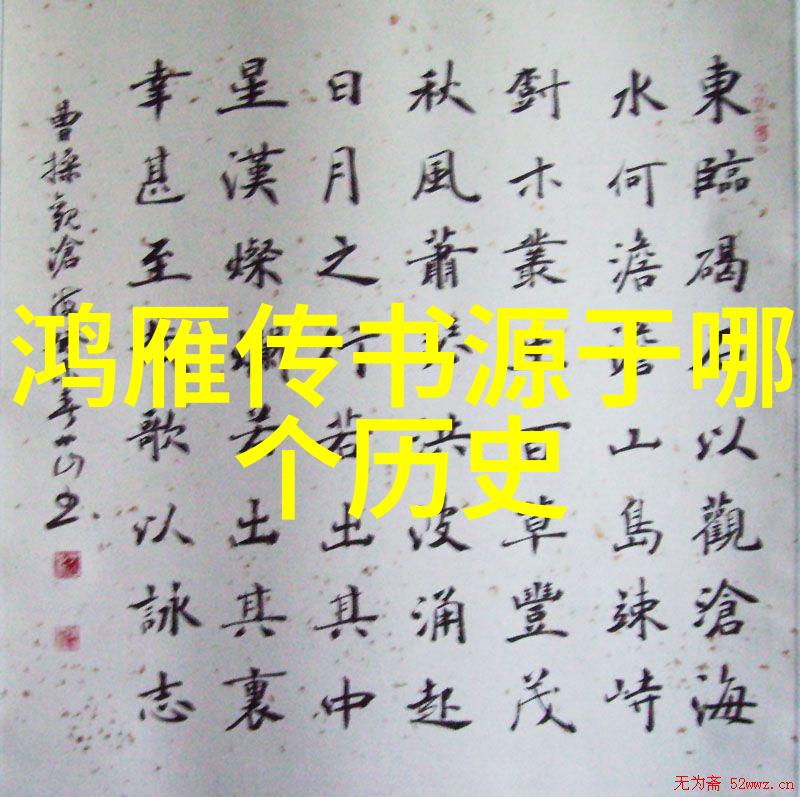 鸿雁传书源于哪
个历史
東臨碣石以觀滄海
水何澹澹山島竦峙
尌木叢生百草豐茂
秋風蕭瑟洪波涌起
日月之行若出其中
星漢燦爛若出其裏
幸甚至哉歌以詠志
曹操觀滄海
无为斋 52wwz.cn